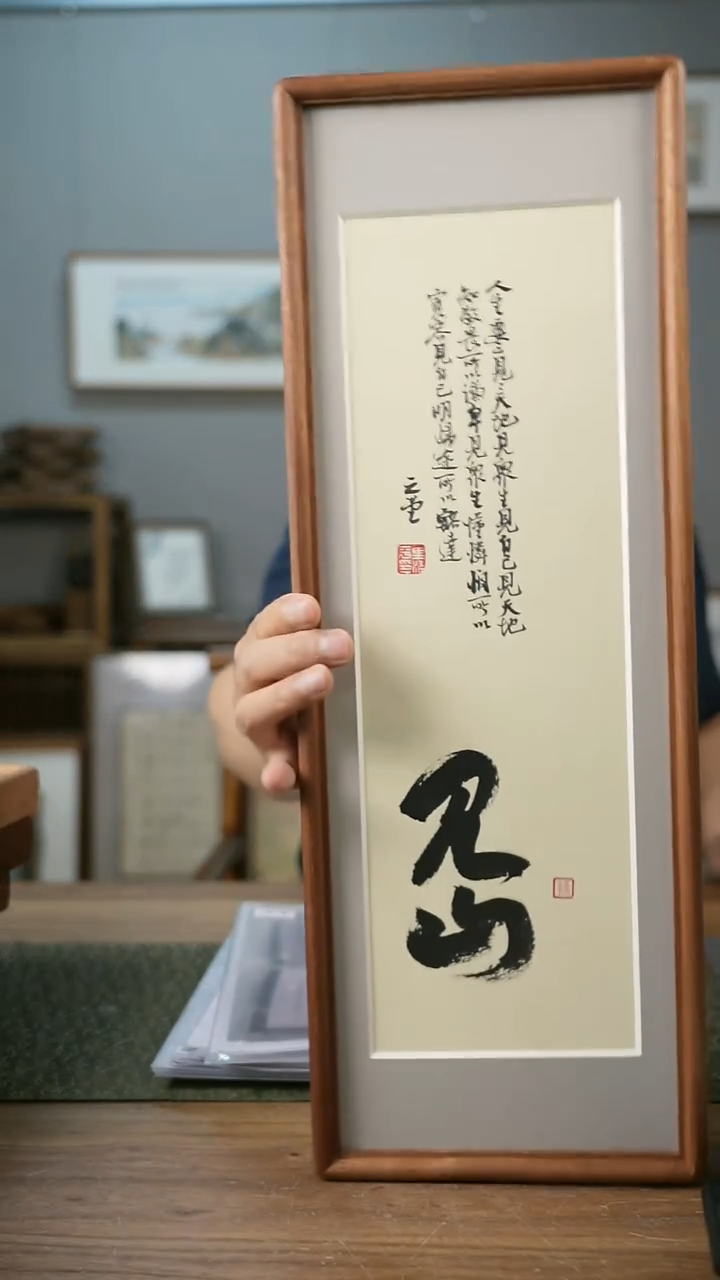 人生要三見々天地見眾生見自己見天地
知敬畏所以謙卑見眾生懂憐憫所以
寬容見自己明歸途所以豁達
见山